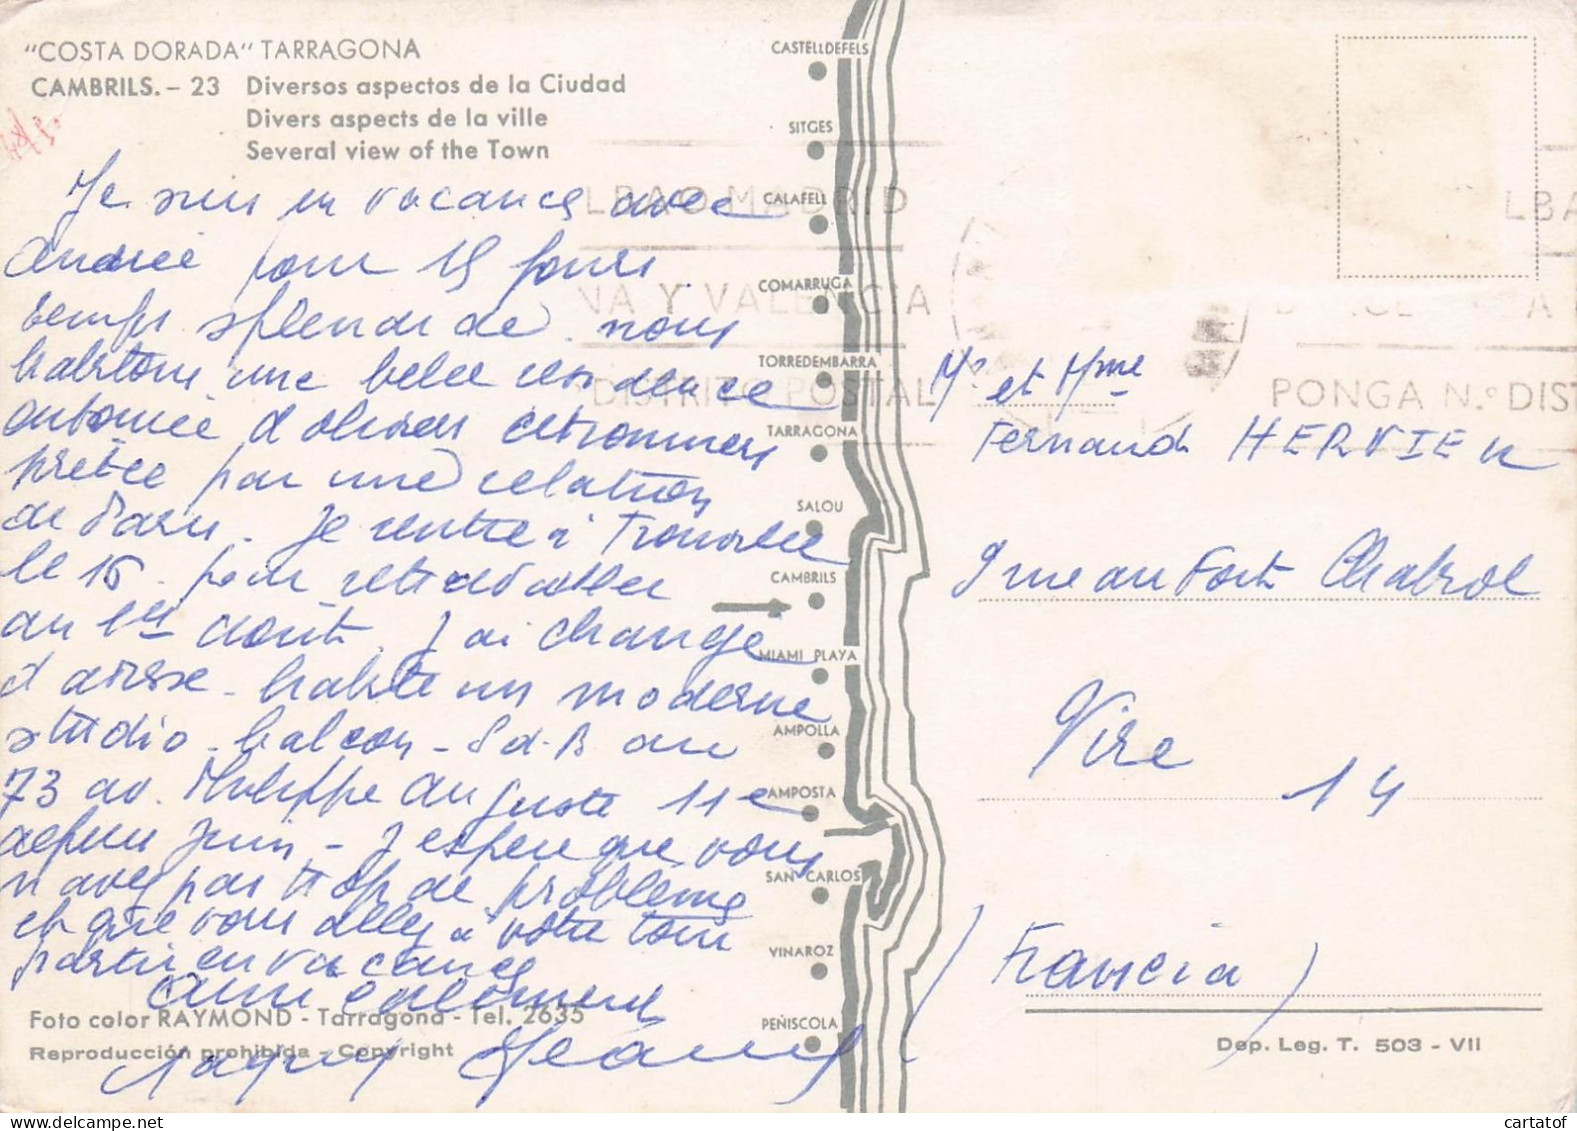 "COSTA DORADA" TARRAGONA
CAMBRILS. - 23 Diversos aspectos de la Ciudad
Divers aspects de la ville
Several view of the Town
Je suis en vacances avec
Andrée pour 15 jours
temps splendide. nous
habitons une belle résidence
entourée d'oliviers citronniers
prêtée par une relation
de Paris. Je rentre à Trouville
le 16. pour retravailler
au 1er août. J'ai changé
d'adresse - habite un moderne
studio - balcon - S d. B au
73 av. Philippe Auguste 11e
depuis Juin - J'espère que vous
n'avez pas trop de problèmes
et que vous allez à votre tour
partir en vacances
Amicalement
Foto color RAYMOND - Tarragona - Tel. 2635
Reproducción prohibida - Copyright
CASTELLDEFELS
SITGES
CALAFELL
COMARRUGA
TORREDEMBARRA
TARRAGONA
SALOU
CAMBRILS
MIAMI PLAYA
AMPOLLA
AMPOSTA
SAN CARLOS
VINAROZ
PEÑISCOLA
LBAO MADRID
NA Y VALENCIA
DISTRITO POSTAL
LBA
PONGA N.º DIST
Mr et Mme
Fernand HERVIEU
9 rue au Fort Chatrol
Vire 14
(Francia)
Dep. Leg. T. 503 - VII
cartatof